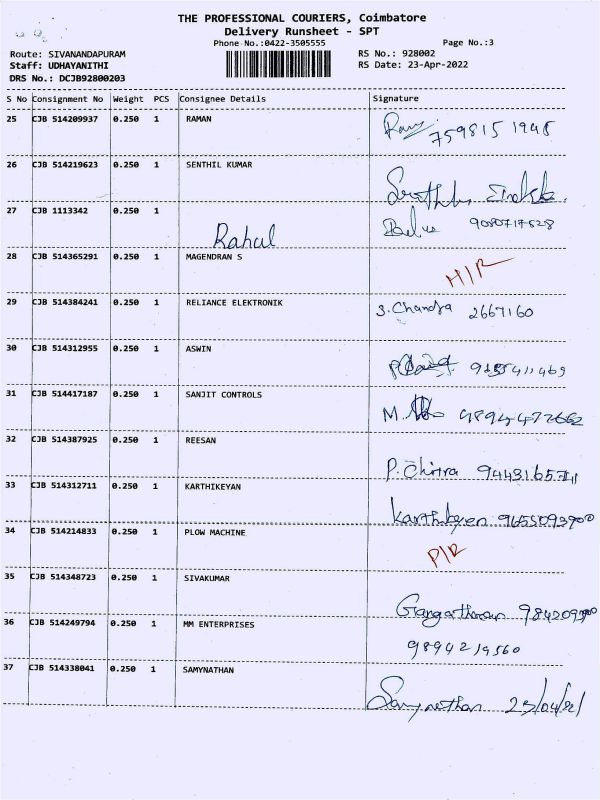 THE PROFESSIONAL COURIERS, Coimbatore
Delivery Runsheet - SPT
Phone No.:0422-3505555 Page No.:3
Route: SIVANANDAPURAM RS No.: 928002
Staff: UDHAYANITHI RS Date: 23-Apr-2022
DRS No.: DCJB92800203
S No Consignment No Weight PCS Consignee Details Signature
25 CJB 514209937 0.250 1 RAMAN
7598151948
26 CJB 514219623 0.250 1 SENTHIL KUMAR
27 CJB 1113342 0.250 1 9080717528
Rahul
28 CJB 514365291 0.250 1 MAGENDRAN S
H/R
29 CJB 514384241 0.250 1 RELIANCE ELEKTRONIK
S. Chandra 2667160
30 CJB 514312955 0.250 1 ASWIN
31 CJB 514417187 0.250 1 SANJIT CONTROLS
M. 9894472662
32 CJB 514387925 0.250 1 REESAN
P. Chitra
33 CJB 514312711 0.250 1 KARTHIKEYAN
Karthikeyen 9655093900
34 CJB 514214833 0.250 1 PLOW MACHINE
P/R
35 CJB 514348723 0.250 1 SIVAKUMAR
36 CJB 514249794 0.250 1 MM ENTERPRISES
9894219560
37 CJB 514338041 0.250 1 SAMYNATHAN
Samynathan